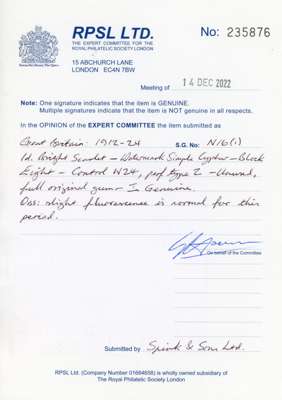 RPSL LTD.
THE EXPERT COMMITTEE FOR THE
ROYAL PHILATELIC SOCIETY LONDON
No: 235876
15 ABCHURCH LANE
LONDON EC4N 7BW
Meeting of 14 DEC 2022
Note: One signature indicates that the item is GENUINE.
Multiple signatures indicate that the item is NOT genuine in all respects.
In the OPINION of the EXPERT COMMITTEE the item submitted as
Great Britain: 1912-24 S.G. No: N16(1)
1d. Bright Scarlet - Watermark Simple Cypher - Block
Eight - Control W24, perf type 2 - Unused,
full original gum - Is Genuine.
Obs: slight fluorescence is normal for this
period.
On behalf of the Committee
Submitted by Spink & Son Ltd.
RPSL Ltd. (Company Number 01664658) is wholly owned subsidiary of
The Royal Philatelic Society London